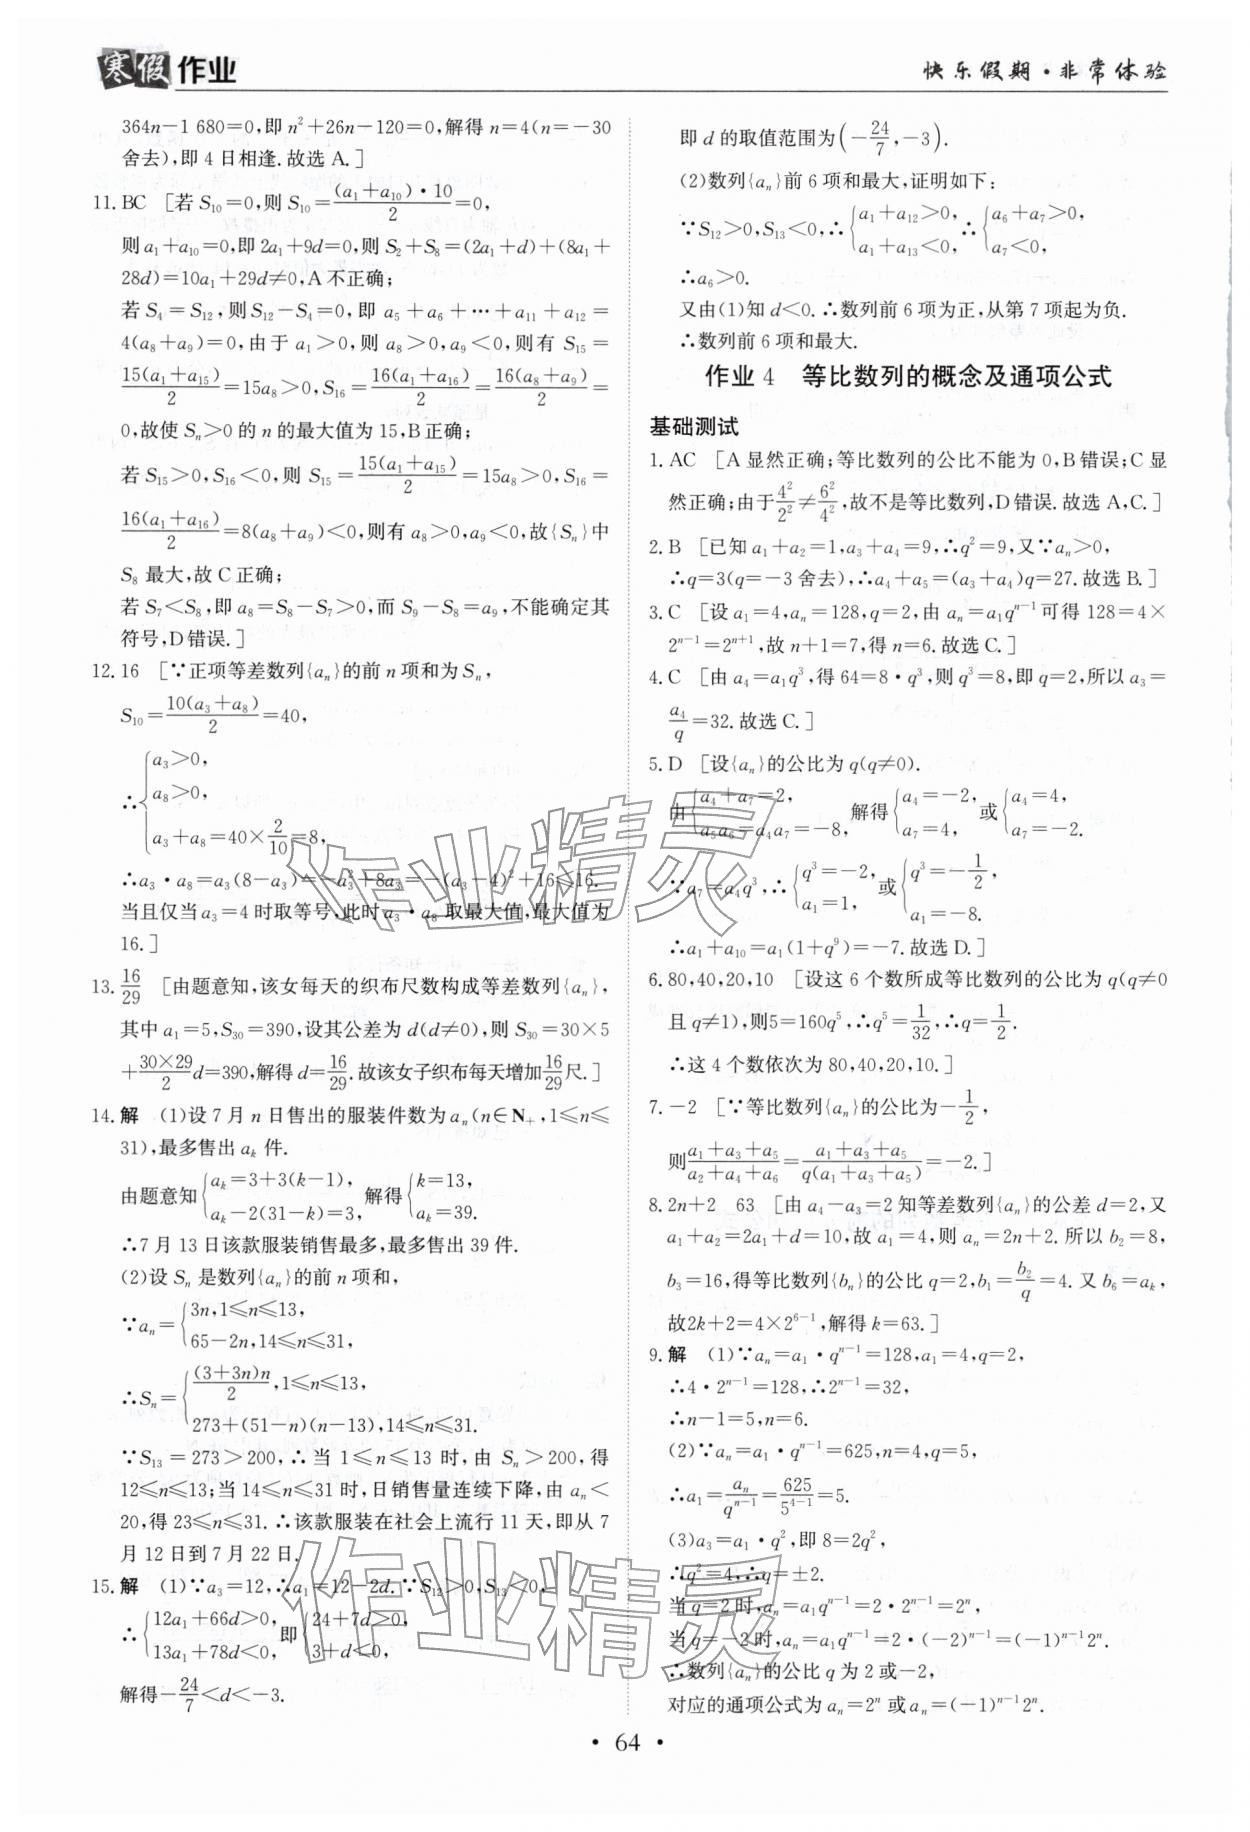 寒假作业
快乐假期·非常体验
364n－1 680＝0,即 n²＋26n－120＝0,解得 n＝4(n＝－30
舍去),即 4 日相逢.故选 A.]
11. BC [若 S₁₀＝0,则 S₁₀＝(a₁＋a₁₀)·10/2＝0,
则 a₁＋a₁₀＝0,即 2a₁＋9d＝0,则 S₂＋S₈＝(2a₁＋d)＋(8a₁＋
28d)＝10a₁＋29d≠0,A 不正确;
若 S₄＝S₁₂,则 S₁₂－S₄＝0,即 a₅＋a₆＋…＋a₁₁＋a₁₂＝
4(a₈＋a₉)＝0,由于 a₁＞0,则 a₈＞0,a₉＜0,则有 S₁₅＝
15(a₁＋a₁₅)/2＝15a₈＞0,S₁₆＝16(a₁＋a₁₆)/2＝16(a₈＋a₉)/2＝
0,故使 Sₙ＞0 的 n 的最大值为 15,B 正确;
若 S₁₅＞0,S₁₆＜0,则 S₁₅＝15(a₁＋a₁₅)/2＝15a₈＞0,S₁₆＝
16(a₁＋a₁₆)/2＝8(a₈＋a₉)＜0,则有 a₈＞0,a₉＜0,故{Sₙ}中
S₈ 最大,故 C 正确;
若 S₇＜S₈,即 a₈＝S₈－S₇＞0,而 S₉－S₈＝a₉,不能确定其
符号,D 错误.]
12. 16 [∵正项等差数列{aₙ}的前 n 项和为 Sₙ,
S₁₀＝10(a₃＋a₈)/2＝40,
∴{a₃＞0,
a₈＞0,
a₃＋a₈＝40×2/10＝8,
∴a₃·a₈＝a₃(8－a₃)＝－a₃²＋8a₃＝－(a₃－4)²＋16≤16.
当且仅当 a₃＝4 时取等号,此时 a₃·a₈ 取最大值,最大值为
16.]
13. 16/29 [由题意知,该女每天的织布尺数构成等差数列{aₙ},
其中 a₁＝5,S₃₀＝390,设其公差为 d(d≠0),则 S₃₀＝30×5
＋30×29/2 d＝390,解得 d＝16/29.故该女子织布每天增加16/29尺.]
14. 解 (1)设 7 月 n 日售出的服装件数为 aₙ(n∈N₊,1≤n≤
31),最多售出 aₖ 件.
由题意知{aₖ＝3＋3(k－1), aₖ－2(31－k)＝3, 解得{k＝13, aₖ＝39.
∴7 月 13 日该款服装销售最多,最多售出 39 件.
(2)设 Sₙ 是数列{aₙ}的前 n 项和,
∵aₙ＝{3n,1≤n≤13,
65－2n,14≤n≤31,
∴Sₙ＝{(3＋3n)n/2,1≤n≤13,
273＋(51－n)(n－13),14≤n≤31.
∵S₁₃＝273＞200,∴当 1≤n≤13 时,由 Sₙ＞200,得
12≤n≤13;当 14≤n≤31 时,日销售量连续下降,由 aₙ＜
20,得 23≤n≤31.∴该款服装在社会上流行 11 天,即从 7
月 12 日到 7 月 22 日.
15. 解 (1)∵a₃＝12,∴a₁＝12－2d.∵S₁₂＞0,S₁₃＜0,
∴{12a₁＋66d＞0, 13a₁＋78d＜0, 即{24＋7d＞0, 3＋d＜0,
解得－24/7＜d＜－3.
即 d 的取值范围为(－24/7,－3).
(2)数列{aₙ}前 6 项和最大,证明如下:
∵S₁₂＞0,S₁₃＜0,∴{a₁＋a₁₂＞0, a₁＋a₁₃＜0, ∴{a₆＋a₇＞0, a₇＜0,
∴a₆＞0.
又由(1)知 d＜0.∴数列前 6 项为正,从第 7 项起为负.
∴数列前 6 项和最大.
作业 4 等比数列的概念及通项公式
基础测试
1. AC [A 显然正确;等比数列的公比不能为 0,B 错误;C 显
然正确;由于4²/2²≠6²/4²,故不是等比数列,D 错误.故选 A,C.]
2. B [已知 a₁＋a₂＝1,a₃＋a₄＝9,∴q²＝9,又∵aₙ＞0,
∴q＝3(q＝－3 舍去),∴a₄＋a₅＝(a₃＋a₄)q＝27.故选 B.]
3. C [设 a₁＝4,aₙ＝128,q＝2,由 aₙ＝a₁qⁿ⁻¹ 可得 128＝4×
2ⁿ⁻¹＝2ⁿ⁺¹,故 n＋1＝7,得 n＝6.故选 C.]
4. C [由 a₄＝a₁q³,得 64＝8·q³,则 q³＝8,即 q＝2,所以 a₃＝
a₄/q＝32.故选 C.]
5. D [设{aₙ}的公比为 q(q≠0).
由{a₄＋a₇＝2, a₅a₆＝a₄a₇＝－8, 解得{a₄＝－2, a₇＝4, 或{a₄＝4, a₇＝－2.
∵a₇＝a₄q³,∴{q³＝－2, a₁＝1, 或{q³＝－1/2, a₁＝－8.
∴a₁＋a₁₀＝a₁(1＋q⁹)＝－7.故选 D.]
6. 80,40,20,10 [设这 6 个数所成等比数列的公比为 q(q≠0
且 q≠1),则5＝160q⁵,∴q⁵＝1/32,∴q＝1/2.
∴这 4 个数依次为 80,40,20,10.]
7. －2 [∵等比数列{aₙ}的公比为－1/2,
则(a₁＋a₃＋a₅)/(a₂＋a₄＋a₆)＝(a₁＋a₃＋a₅)/(q(a₁＋a₃＋a₅))＝－2.]
8. 2n＋2 63 [由 a₄－a₃＝2 知等差数列{aₙ}的公差 d＝2,又
a₁＋a₂＝2a₁＋d＝10,故 a₁＝4,则 aₙ＝2n＋2.所以 b₂＝8,
b₃＝16,得等比数列{bₙ}的公比 q＝2,b₁＝b₂/q＝4.又 b₆＝aₖ,
故2k＋2＝4×2⁶⁻¹,解得 k＝63.]
9. 解 (1)∵aₙ＝a₁·qⁿ⁻¹＝128,a₁＝4,q＝2,
∴4·2ⁿ⁻¹＝128,∴2ⁿ⁻¹＝32,
∴n－1＝5,n＝6.
(2)∵aₙ＝a₁·qⁿ⁻¹＝625,n＝4,q＝5,
∴a₁＝aₙ/qⁿ⁻¹＝625/5⁴⁻¹＝5.
(3)a₃＝a₁·q²,即 8＝2q²,
∴q²＝4,∴q＝±2.
当 q＝2 时,aₙ＝a₁qⁿ⁻¹＝2·2ⁿ⁻¹＝2ⁿ,
当 q＝－2 时,aₙ＝a₁qⁿ⁻¹＝2·(－2)ⁿ⁻¹＝(－1)ⁿ⁻¹2ⁿ.
∴数列{aₙ}的公比 q 为 2 或－2,
对应的通项公式为 aₙ＝2ⁿ 或aₙ＝(－1)ⁿ⁻¹2ⁿ.
·64·
作业精灵
作业精灵